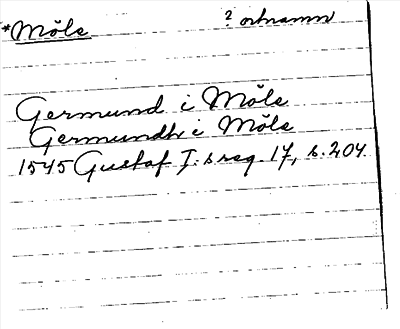 *Möls ? ortnamn
Germund i Möls
Germundh i Möls
1545 Gustaf I:s reg. 17, s. 204